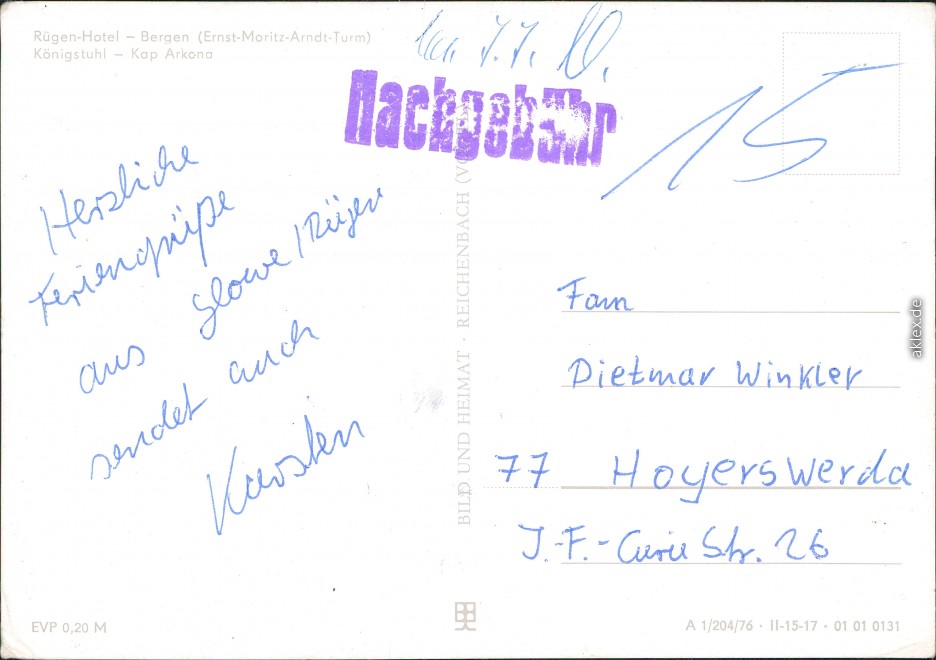 Rügen-Hotel – Bergen (Ernst-Moritz-Arndt-Turm)
Königstuhl – Kap Arkona
7.7.
Nachgebühr
15
Herzliche
Feriengrüße
aus Glowe/Rügen
sendet euch
Karsten
BILD UND HEIMAT · REICHENBACH (VO
Fam
Dietmar Winkler
77 Hoyerswerda
J.-F.-Curie Str. 26
EVP 0,20 M
A 1/204/76 · II-15-17 · 01 01 0131
aklex.de